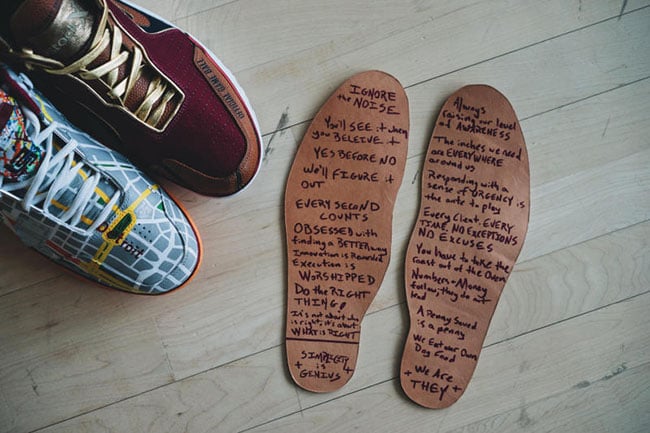 IGNORE
the NOISE
You'll SEE it when
you BELEIVE it
YES BEFORE NO
We'll FIGURE it
OUT
EVERY SECOND
COUNTS
OBSESSED with
finding a BETTER way
Innovation is Rewarded
Execution is
WORSHIPPED
Do the RIGHT
THING
It's not about who
is right, it's about
WHAT is RIGHT
SIMPLICITY
is
GENIUS
Always
raising our level
of AWARENESS
The inches we need
are EVERYWHERE
around us
Responding with a
sense of URGENCY is
the ante to play
Every Client. EVERY
TIME. NO EXCEPTIONS
NO EXCUSES
You have to take the
roast out of the Oven
Numbers + Money
follow; they do not
lead
A Penny Saved
is a penny
We Eat our Own
Dog Food
We Are
THEY
Detroit